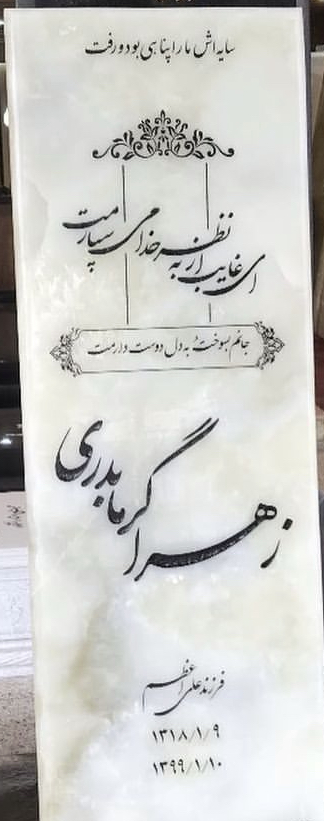 سایه‌اش ما را پناهی بود و رفت
ای غایب از نظر به خدا می سپارمت
جانم بسوخت به دل دوست دارمت
زهرا گرمابدری
فرزند علی اعظم
۱۳۱۸/۱/۹
۱۳۹۹/۱/۱۰